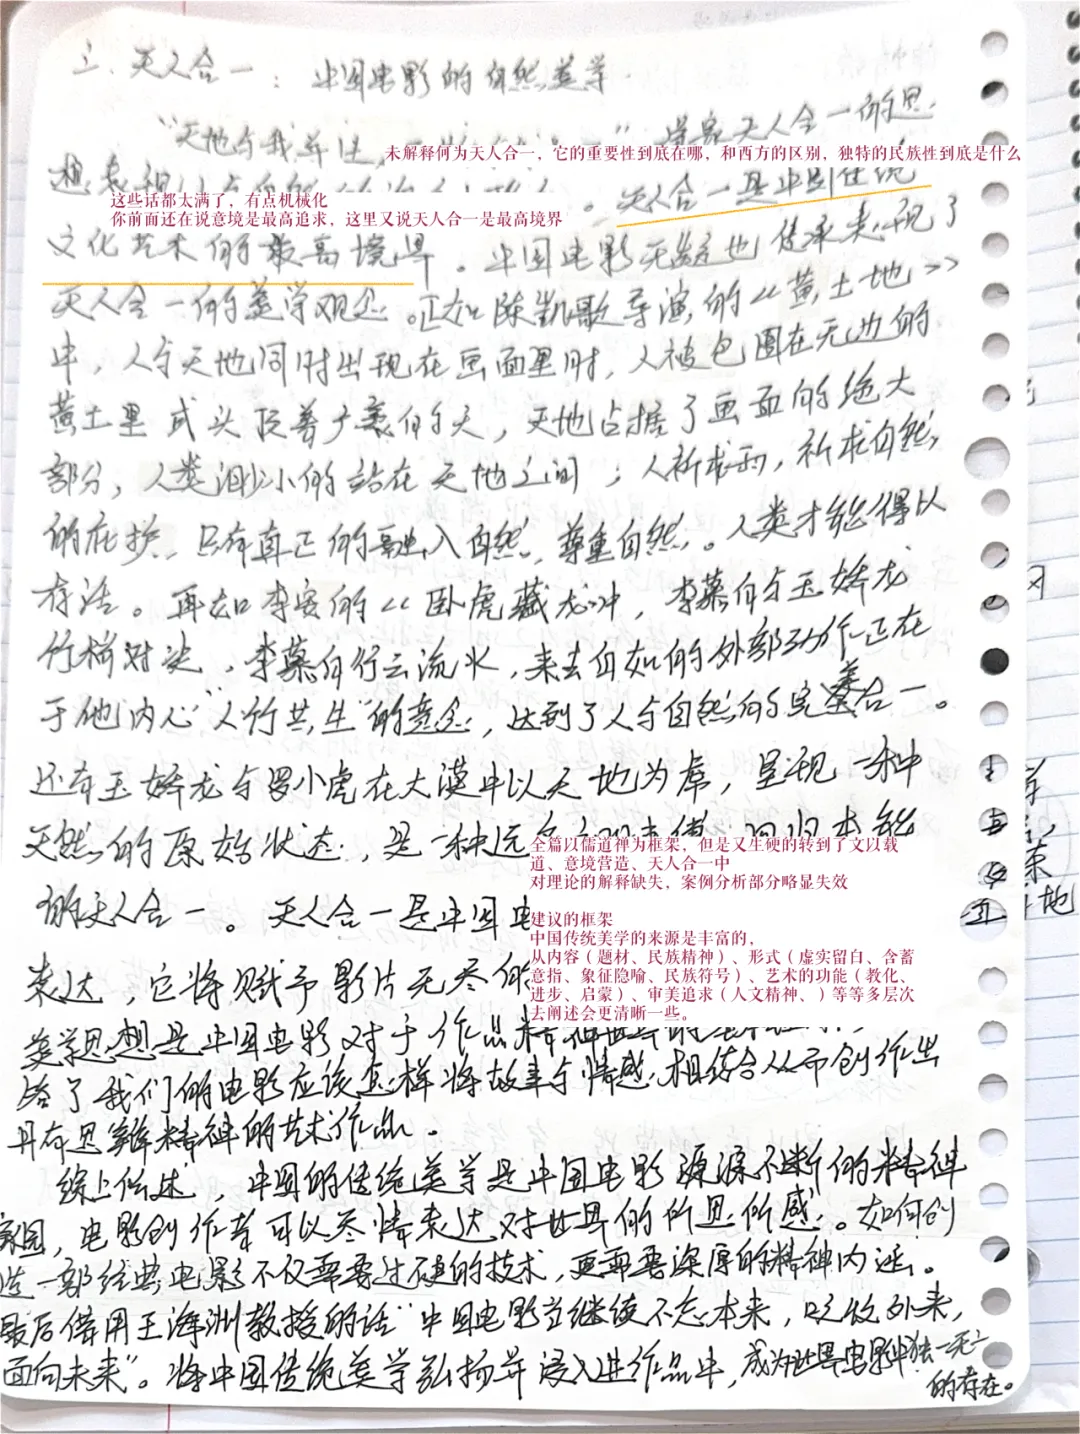 三、天人合一：中国电影的自然美学
"天地与我并生，
道家天人合一的思
未解释何为天人合一，它的重要性到底在哪，和西方的区别，独特的民族性到底是什么
想
这些话都太满了，有点机械化
你前面还在说意境是最高追求，这里又说天人合一是最高境界
。天人合一是中国传统
文化艺术的最高境界。中国电影无疑也传承表现了
天人合一的美学观念。正如陈凯歌导演的《黄土地》
中，人与天地同时出现在画面里时，人被包围在无边的
黄土里或头顶着广袤的天，天地占据了画面的绝大
部分，人类渺小的站在天地之间；人祈求雨，祈求自然
的庇护，只有真正的融入自然，尊重自然。人类才能得以
存活。再如李安的《卧虎藏龙》中，李慕白与玉娇龙
竹梢对决，李慕白行云流水，来去自如的外部动作正在
于他内心"人竹共生"的意念，达到了人与自然的完美合一。
还有玉娇龙与罗小虎在大漠中以天地为席，呈现一种
天然的原始状态，是一种远
回归本能
全篇以儒道禅为框架，但是又生硬的转到了文以载
道、意境营造、天人合一中
对理论的解释缺失，案例分析部分略显失效
的天人合一。天人合一是中国电
建议的框架
中国传统美学的来源是丰富的，
从内容（题材、民族精神）、形式（虚实留白、含蓄
意指、象征隐喻、民族符号）、艺术的功能（教化、
进步、启蒙）、审美追求（人文精神、）等等多层次
去阐述会更清晰一些。
表达，它将赋予影片无尽的
美学思想是中国电影对于作品精神世界的
答了我们的电影应该怎样将故事与情感相结合从而创作出
具有思辨精神的艺术作品。
综上所述，中国的传统美学是中国电影源源不断的精神
家园，电影创作者可以尽情表达对世界的所思所感。如何创
造一部经典电影不仅需要过硬的技术，更需要深厚的精神内涵。
最后借用王海洲教授的话"中国电影当继续不忘本来，吸收外来，
面向未来"。将中国传统美学弘扬并浸入进作品中，成为世界电影中独一无二
的存在。